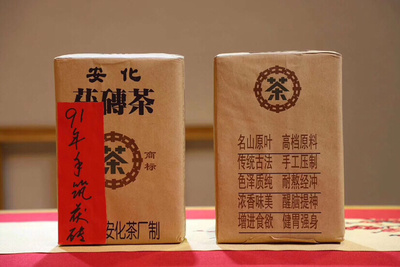 安化
茯磚茶
91年手筑茯砖
茶
商标
安化茶厂制
茶
名山原叶 高档原料
传统古法 手工压制
色泽质纯 耐熬经冲
浓香味美 醒脑提神
增进食欲 健胃强身